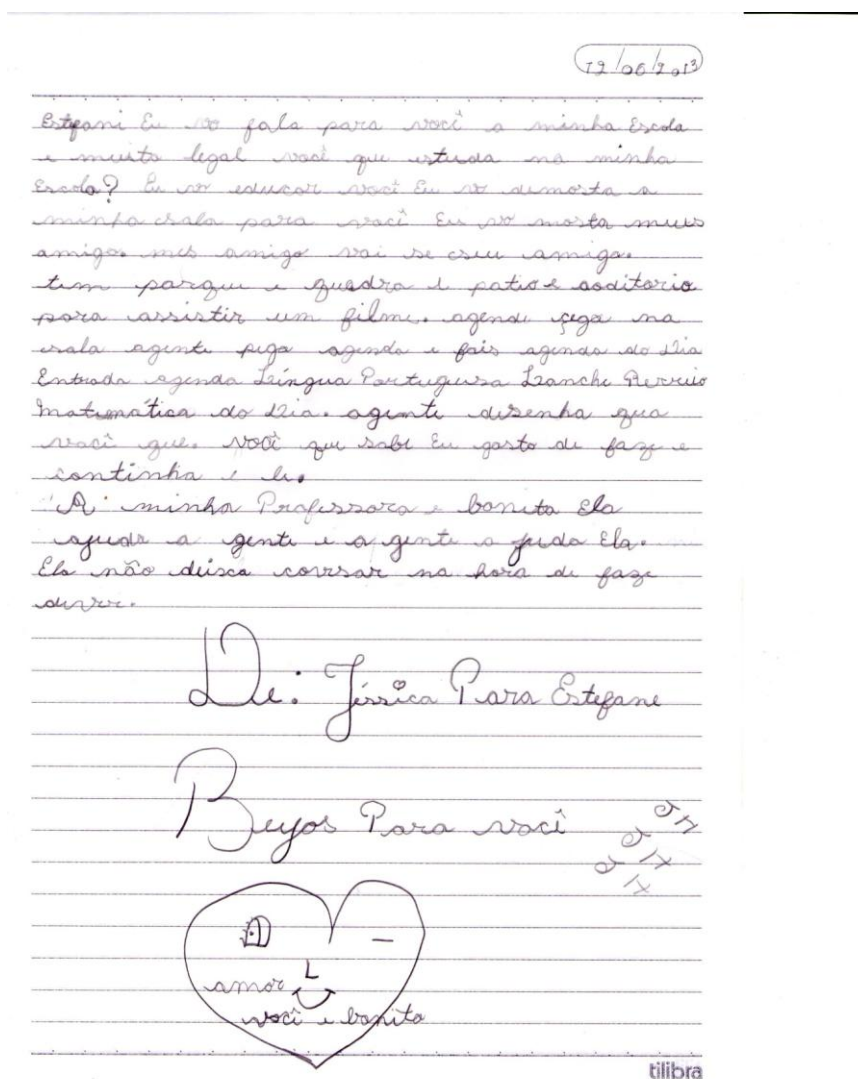 12/06/2013
Estefani Eu vo fala para você a minha Escola
e muito legal você que estuda na minha
Escola? Eu vo educar você Eu vo demosta a
minha csala para você Eu vo mosta meus
amigo. mes amigo vai se cseu amiga.
tem parque e quadra e patio e aoditorio
para assistir um filme. agende çega na
csala agente pega agenda e fais agenda do Dia
Entrada agenda Língua Portuguesa Lanche Recreio
Matemática do Dia. agente desenha qua
você que. você que sabe Eu gosto de faze e
continha e le.
A minha Professora e bonita Ela
ajuda a gente e a gente a juda Ela.
Ela não deisca coversar na hora de faze
dever.
De: Jéssica Para Estefane
Beyos Para você
amor
você e bonita
tilibra